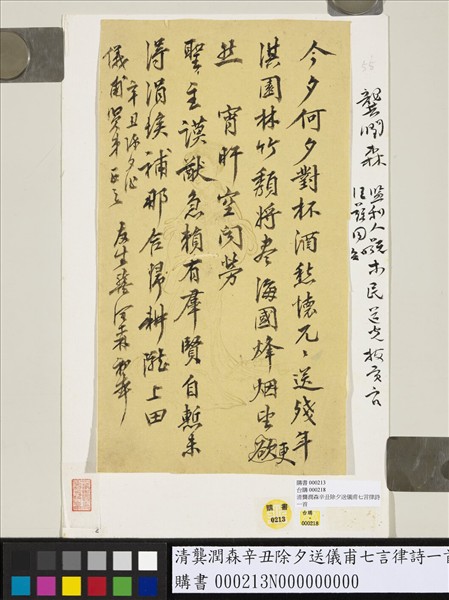 龔潤森
監利人 號木民 道光拔貢
今夕何夕對杯酒愁懷兀〻送殘年
淇園林竹頹將盡海國烽烟欲更
然 宵旰空聞勞
聖主謨猷急賴有羣賢自慙未
得涓埃補那合歸耕隴上田
辛丑除夕作
儀甫賢弟正之
友生龔潤森
購書 000213
台購 000218
清龔潤森辛丑除夕送儀甫七言律詩
一首
購書
0213
台購
000218
清龔潤森辛丑除夕送儀甫七言律詩一首
購書 000213N000000000